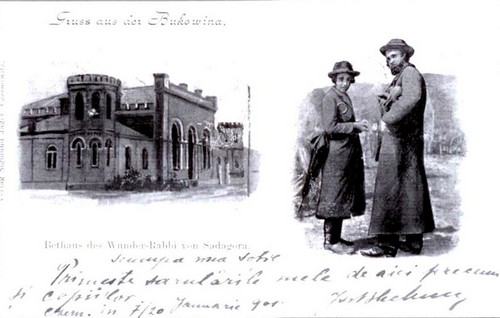 Gruss aus der Bukowina.
Bethaus des Wunder-Rabbi von Sadagora.
Scumpa mea sotie
Primeste sarutările mele de aici precum
si copiilor
Czern. in 7/20 Januarie 901